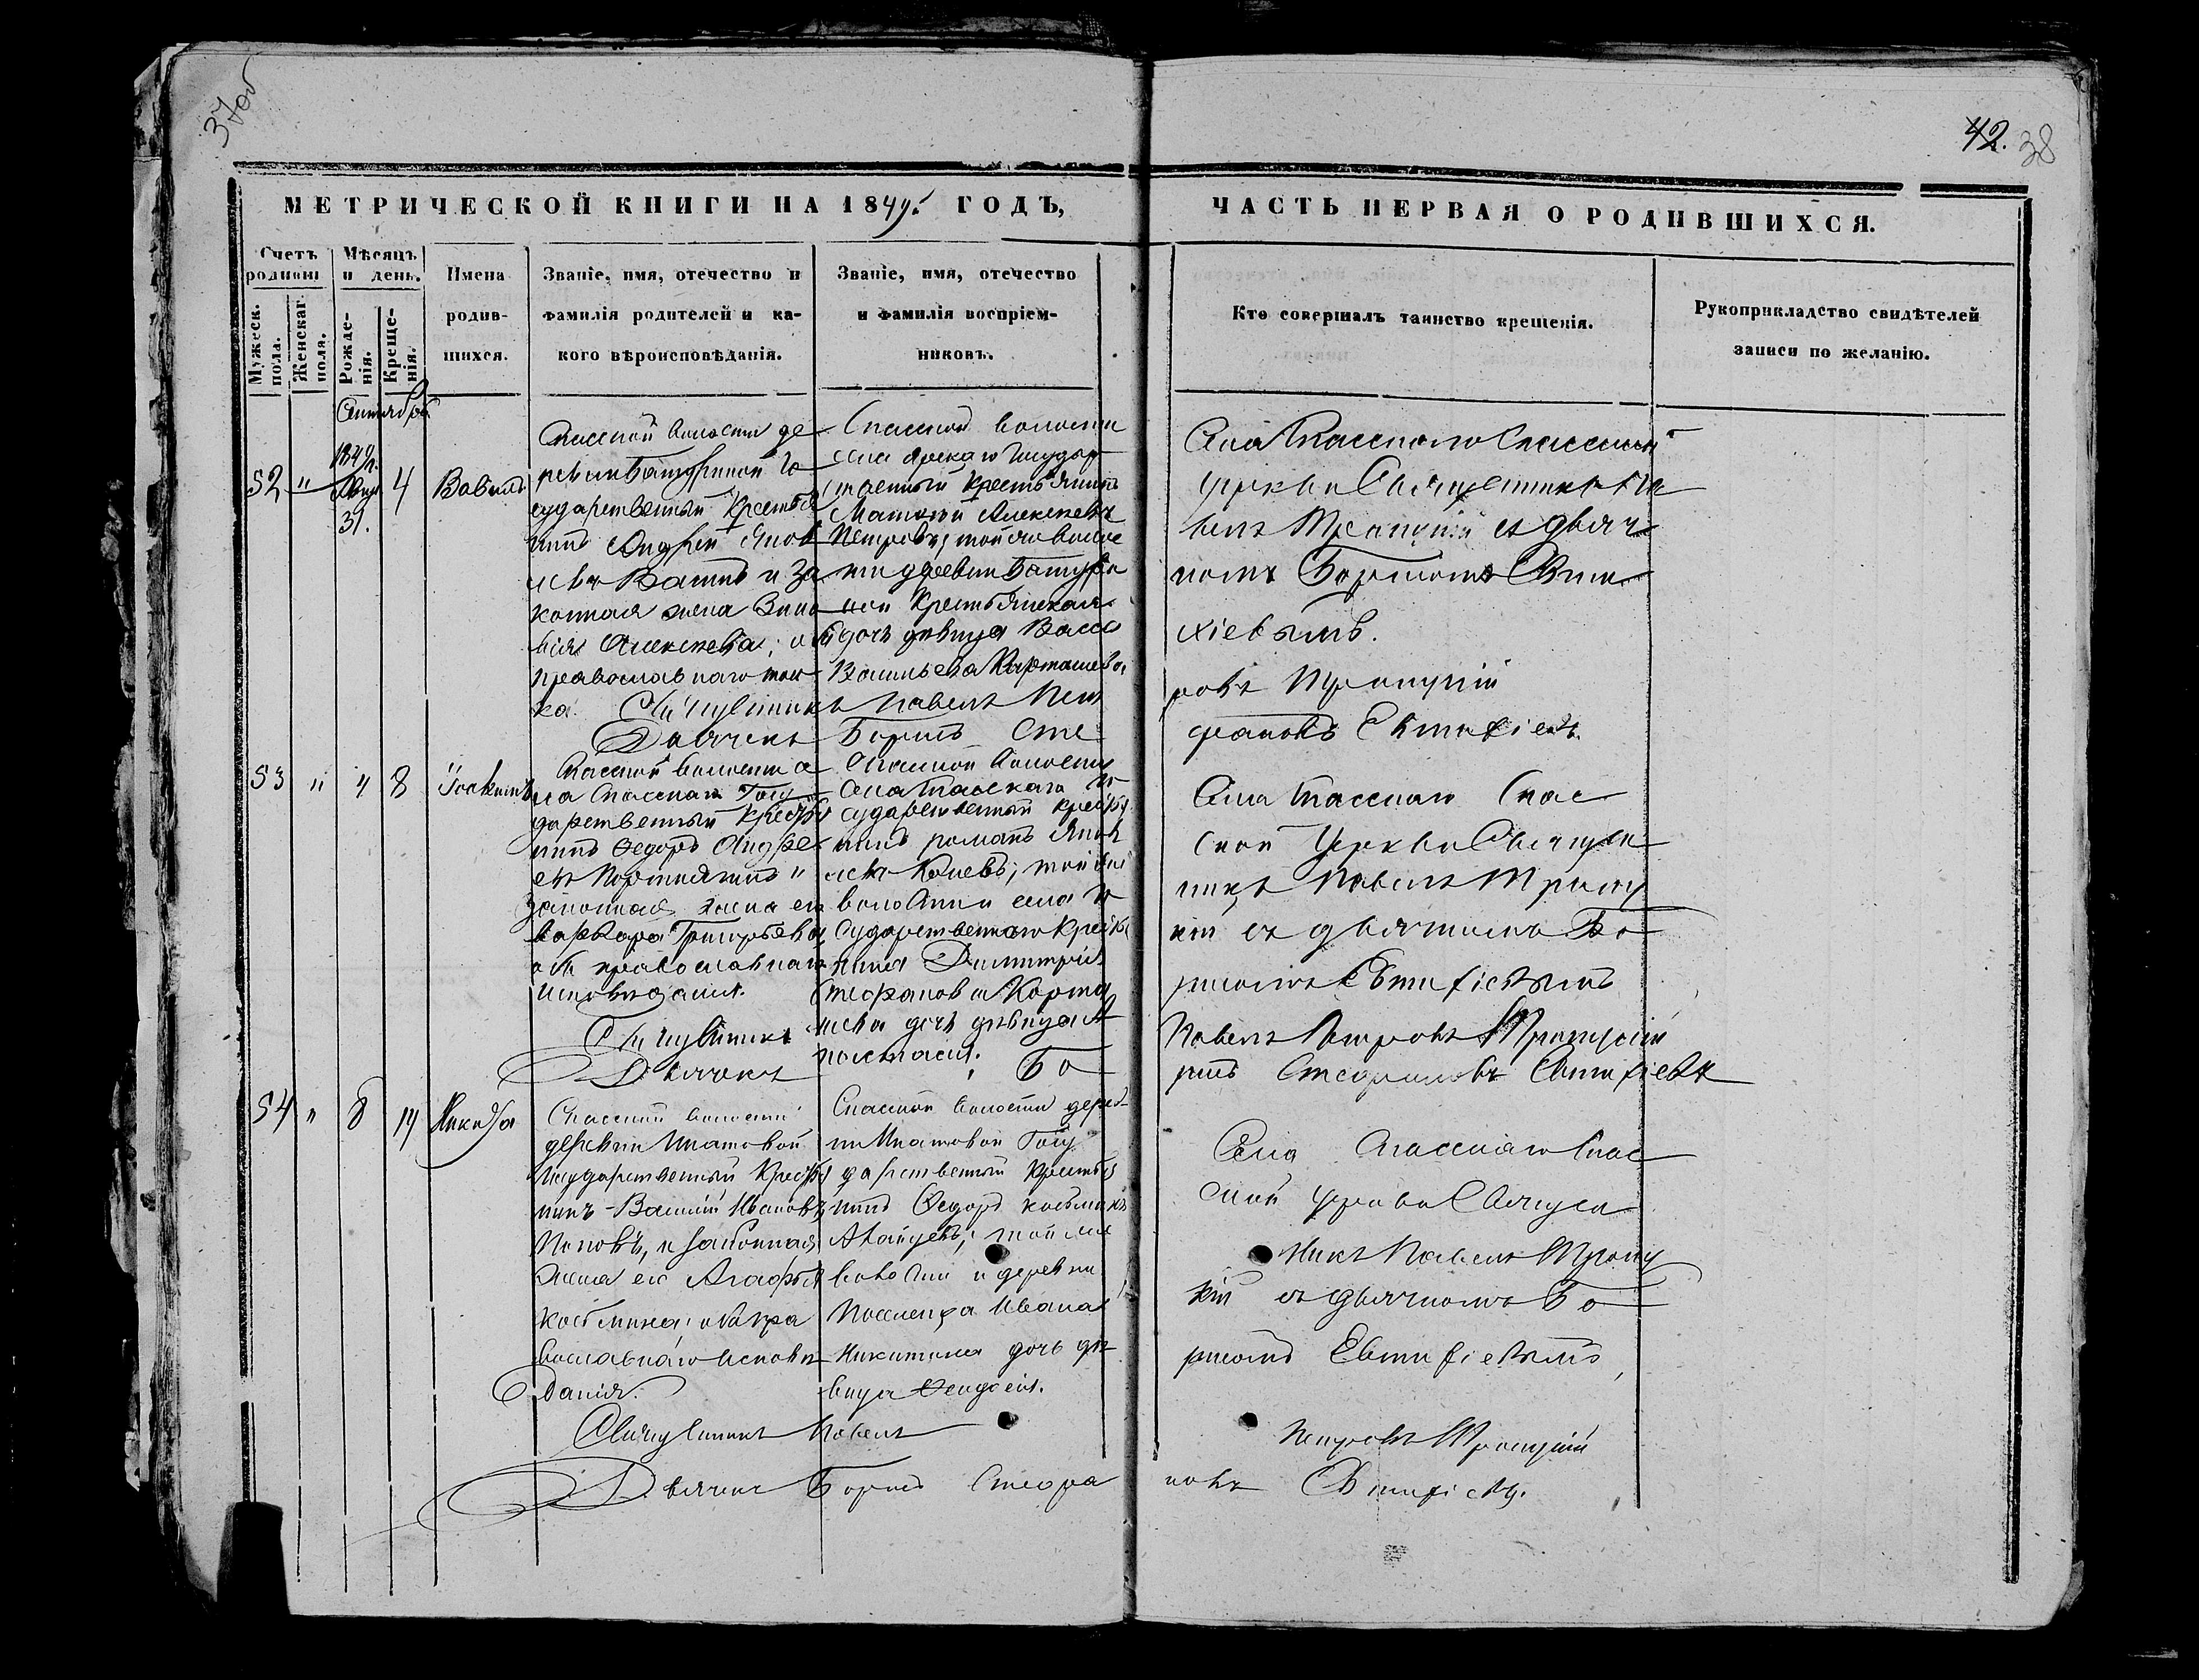 37об
42. 38
МЕТРИЧЕСКОЙ КНИГИ НА 184 ГОДЪ,
ЧАСТЬ ПЕРВАЯ О РОДИВШИХСЯ.
Счетъ
родивш
Мужеск.
пола.
Женскаг
пола.
Мѣсяцъ
и день.
Рожде-
нія.
Креще-
нія.
Имена
родив-
шихся.
Званіе, имя, отечество и
фамилія родителей и ка-
кого вѣроисповѣданія.
Званіе, имя, отечество
и фамилія воспріем-
никовъ.
Кто совершалъ таинство крещенія.
Рукоприкладство свидѣтелей
записи по желанію.
Сентября
52 " 31. 4
Спасской волости де
ревни Батуриной Го
сударственный Крестья
нинъ Андрей Яков
левъ и за
конная жена Зино
вія Алексеева; оба
православнаго
Священникъ
Дьячекъ
Спасской волости
села Государ
ственный крестьянинъ
Матвей Алексеевъ
Петровъ; той же волос
ти деревни Батури
ной Крестьянская
дочь девица Васса
Васильева Карташева
Павелъ Пет
Борисъ Сте
Села Спасскаго Спасской
церкви Священникъ Па
велъ Троицкій съ дьяч
комъ Борисомъ Евти
хіевымъ.
ровъ Троицкій
фановъ Евтихіевъ.
53 " " 8 Іоакимъ
Спасской волости се
ла Спасскаго Госу
дарственный Крестья
нинъ Федоръ Андре
евъ Портнягинъ и
законная жена его
Варвара Григорьева,
оба православнаго
исповеданія.
Священникъ
Дьячекъ
Спасской волости
села Спасскаго Го
сударственный крестья
нинъ Романъ Яков
левъ; той же
волости и села Го
сударственнаго Крестья
нина Димитрія
Стефанова Карта
шева дочь девица А
настасія.
Бо
Села Спасскаго Спас
ской Церкви Священ
никъ Павелъ Троиц
кій съ дьячкомъ Бо
рисомъ Евтихіевымъ
Павелъ Петровъ Троицкій
рисъ Стефановъ Евтихіевъ
54 " 8 14 Никита
Спасской волости
деревни Игатовой
Государственный Крестья
нинъ Василій Ивановъ
Поповъ, и законная
жена его Агафья
Косьмина; оба пра
вославнаго исповѣ
данія.
Священникъ
Дьячекъ
Спасской волости дерев
ни Игатовой Госу
дарственный крестья
нинъ Федоръ Косьминъ
; той же
волости и деревни
Поселенца Ивана
Никитина дочь де
вица Феодосія.
Павелъ
Борисъ Стефа
Села Спасскаго Спас
ской церкви Священ
никъ Павелъ Троиц
кій съ дьячкомъ Бо
рисомъ Евтихіевымъ,
Петровъ Троицкій
новъ Евтихіевъ.